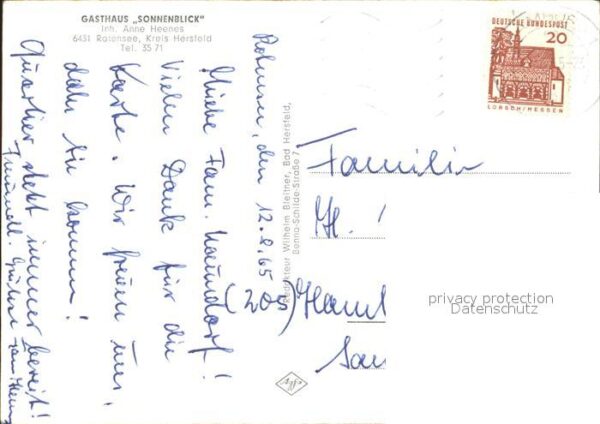 GASTHAUS „SONNENBLICK"
Inh. Anne Heenes
6431 Rotensee, Kreis Hersfeld
Tel. 35 71
DEUTSCHE BUNDESPOST
20
LORSCH/HESSEN
Redakteur Wilhelm Bleitner, Bad Hersfeld,
Benno-Schilde-Straße 7
den 12.8.65
Liebe Fam.
Vielen Dank für die
Karte. Wir freuen uns,
daß Sie kommen!
Quartier steht immer bereit!
Freundl. Grüße
Familie
H.
(205) Haml
San
privacy protection
Datenschutz